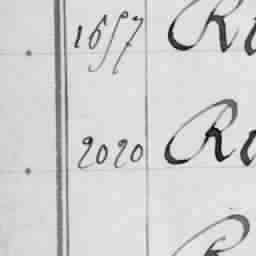 1657 Ru
2020 Ru